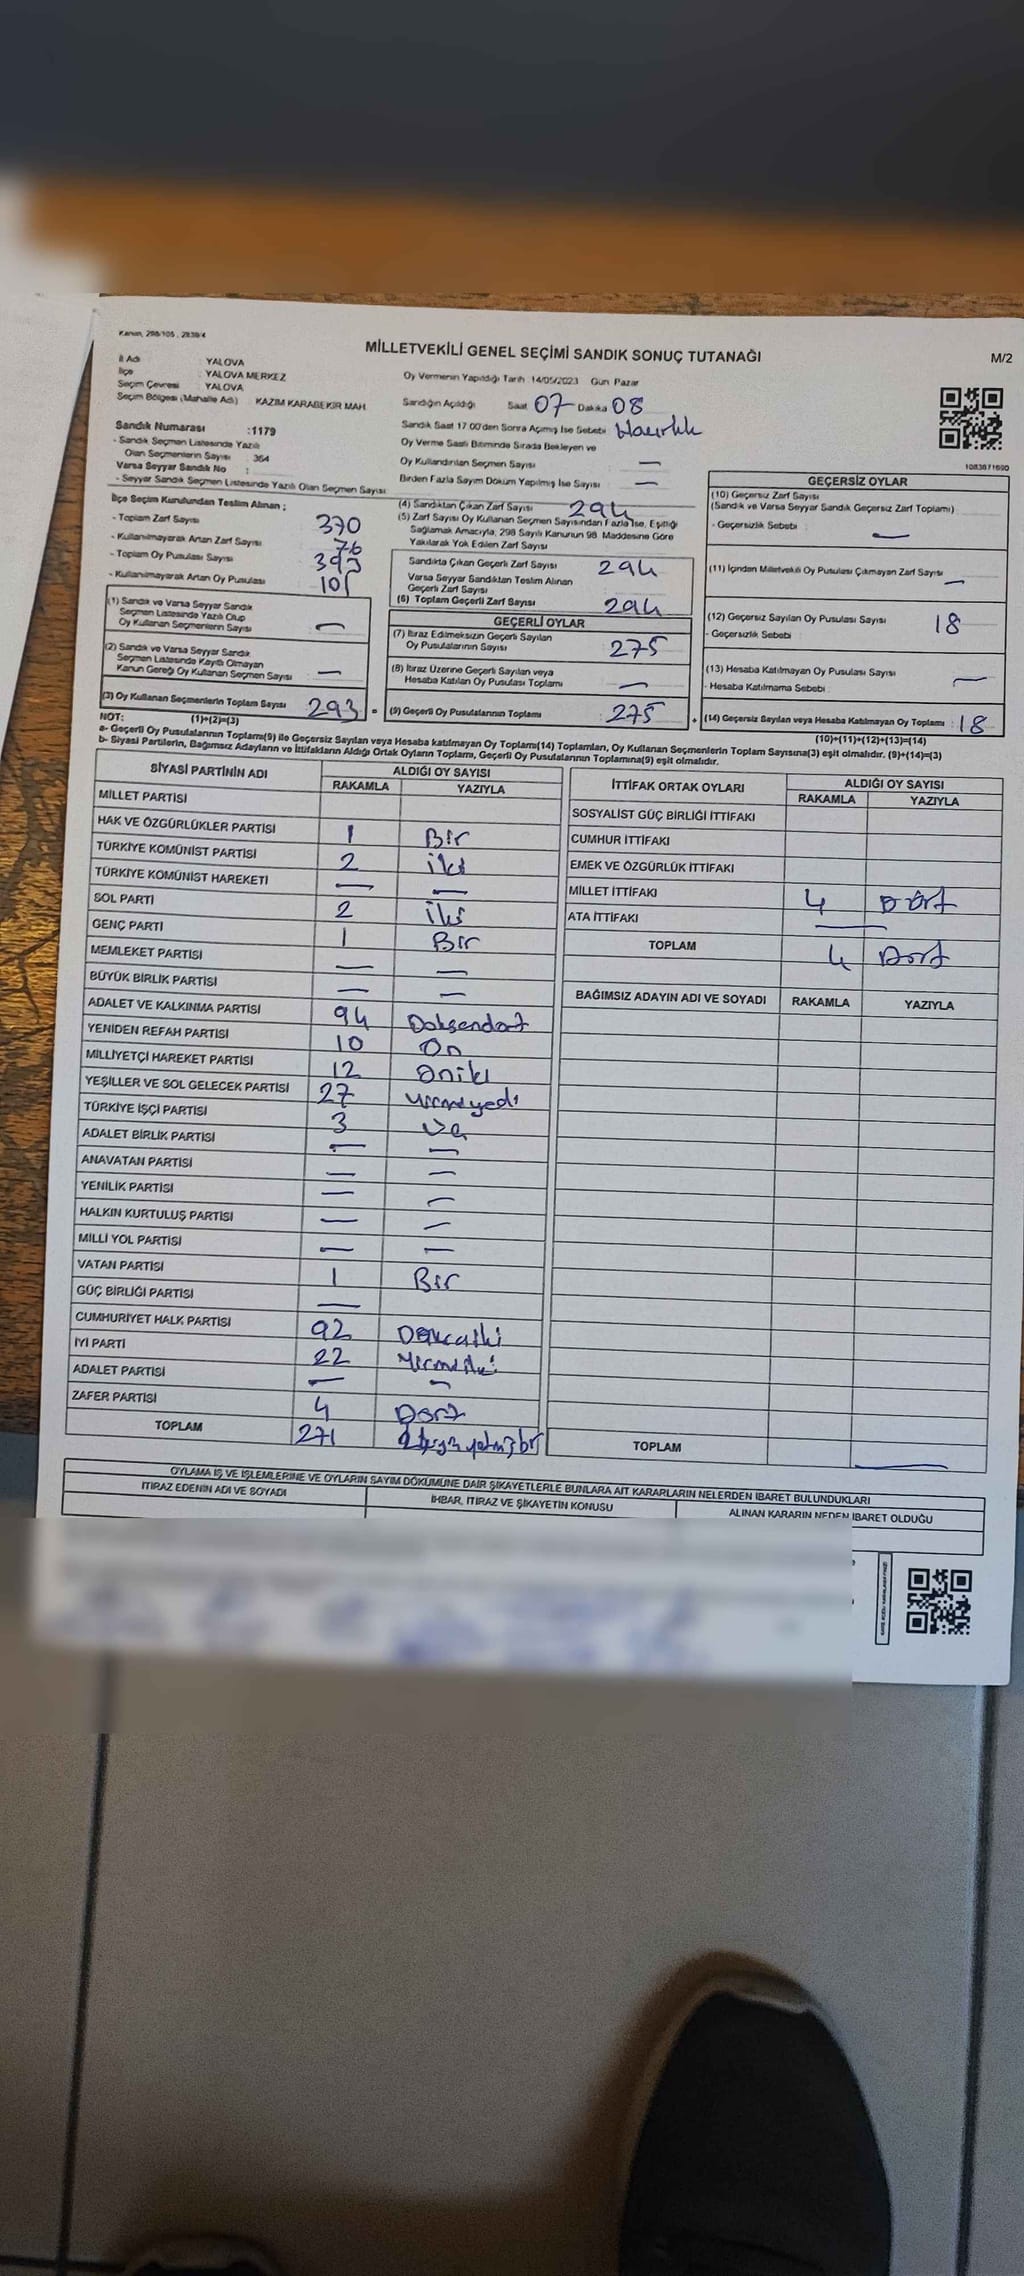 Kanun, 298/105 , 2839/4
MİLLETVEKİLİ GENEL SEÇİMİ SANDIK SONUÇ TUTANAĞI
M/2
İl Adı : YALOVA
İlçe : YALOVA MERKEZ
Seçim Çevresi : YALOVA
Seçim Bölgesi (Mahalle Adı) : KAZIM KARABEKİR MAH.
Sandık Numarası :1179
- Sandık Seçmen Listesinde Yazılı
Olan Seçmenlerin Sayısı : 364
Varsa Seyyar Sandık No :
- Seyyar Sandık Seçmen Listesinde Yazılı Olan Seçmen Sayısı:
Oy Vermenin Yapıldığı Tarih 14/05/2023 Gün Pazar
Sandığın Açıldığı Saat 07 Dakika 08
Sandık Saat 17.00'den Sonra Açımış İse Sebebi
Oy Verme Saati Bitiminde Sırada Bekleyen ve
Oy Kullandırılan Seçmen Sayısı —
Birden Fazla Sayım Döküm Yapılmış İse Sayısı —
1083871690
İlçe Seçim Kurulundan Teslim Alınan ;
- Toplam Zarf Sayısı : 370
- Kullanılmayarak Artan Zarf Sayısı : 76
- Toplam Oy Pusulası Sayısı : 393
- Kullanılmayarak Artan Oy Pusulası : 101
(1) Sandık ve Varsa Seyyar Sandık
Seçmen Listesinde Yazılı Olup
Oy Kullanan Seçmenlerin Sayısı : —
(2) Sandık ve Varsa Seyyar Sandık
Seçmen Listesinde Kayıtlı Olmayan
Kanun Gereği Oy Kullanan Seçmen Sayısı : —
(3) Oy Kullanan Seçmenlerin Toplam Sayısı : 293 =
(1)+(2)=(3)
(4) Sandıktan Çıkan Zarf Sayısı : 294
(5) Zarf Sayısı Oy Kullanan Seçmen Sayısından Fazla İse, Eşitliği
Sağlamak Amacıyla, 298 Sayılı Kanunun 98. Maddesine Göre
Yakılarak Yok Edilen Zarf Sayısı
Sandıkta Çıkan Geçerli Zarf Sayısı : 294
Varsa Seyyar Sandıktan Teslim Alınan
Geçerli Zarf Sayısı
(6) Toplam Geçerli Zarf Sayısı : 294
GEÇERLİ OYLAR
(7) İtiraz Edilmeksizin Geçerli Sayılan
Oy Pusulalarının Sayısı : 275
(8) İtiraz Üzerine Geçerli Sayılan veya
Hesaba Katılan Oy Pusulası Toplamı : —
(9) Geçerli Oy Pusulalarının Toplamı : 275 +
GEÇERSİZ OYLAR
(10) Geçersiz Zarf Sayısı
(Sandık ve Varsa Seyyar Sandık Geçersiz Zarf Toplamı)
- Geçersizlik Sebebi : —
(11) İçinden Milletvekili Oy Pusulası Çıkmayan Zarf Sayısı : —
(12) Geçersiz Sayılan Oy Pusulası Sayısı : 18
- Geçersizlik Sebebi :
(13) Hesaba Katılmayan Oy Pusulası Sayısı : —
- Hesaba Katılmama Sebebi :
(14) Geçersiz Sayılan veya Hesaba Katılmayan Oy Toplamı : 18
(10)+(11)+(12)+(13)=(14)
NOT:
a- Geçerli Oy Pusulalarının Toplamı(9) ile Geçersiz Sayılan veya Hesaba katılmayan Oy Toplamı(14) Toplamları, Oy Kullanan Seçmenlerin Toplam Sayısına(3) eşit olmalıdır. (9)+(14)=(3)
b- Siyasi Partilerin, Bağımsız Adayların ve İttifakların Aldığı Ortak Oyların Toplamı, Geçerli Oy Pusulalarının Toplamına(9) eşit olmalıdır.
SİYASİ PARTİNİN ADI ALDIĞI OY SAYISI
RAKAMLA YAZIYLA
MİLLET PARTİSİ
HAK VE ÖZGÜRLÜKLER PARTİSİ 1 Bir
TÜRKİYE KOMÜNİST PARTİSİ 2 iki
TÜRKİYE KOMÜNİST HAREKETİ — —
SOL PARTİ 2 iki
GENÇ PARTİ 1 Bir
MEMLEKET PARTİSİ — —
BÜYÜK BİRLİK PARTİSİ — —
ADALET VE KALKINMA PARTİSİ 94 Doksandört
YENİDEN REFAH PARTİSİ 10 On
MİLLİYETÇİ HAREKET PARTİSİ 12 Oniki
YEŞİLLER VE SOL GELECEK PARTİSİ 27 yirmiyedi
TÜRKİYE İŞÇİ PARTİSİ 3 üç
ADALET BİRLİK PARTİSİ — —
ANAVATAN PARTİSİ — —
YENİLİK PARTİSİ — —
HALKIN KURTULUŞ PARTİSİ — —
MİLLİ YOL PARTİSİ — —
VATAN PARTİSİ 1 Bir
GÜÇ BİRLİĞİ PARTİSİ —
CUMHURİYET HALK PARTİSİ 92 Doksaniki
İYİ PARTİ 22 Yirmiiki
ADALET PARTİSİ — —
ZAFER PARTİSİ 4 Dört
TOPLAM 271 ikiyüzyetmişbir
İTTİFAK ORTAK OYLARI ALDIĞI OY SAYISI
RAKAMLA YAZIYLA
SOSYALİST GÜÇ BİRLİĞİ İTTİFAKI
CUMHUR İTTİFAKI
EMEK VE ÖZGÜRLÜK İTTİFAKI
MİLLET İTTİFAKI 4 Dört
ATA İTTİFAKI —
TOPLAM 4 Dört
BAĞIMSIZ ADAYIN ADI VE SOYADI RAKAMLA YAZIYLA
TOPLAM —
OYLAMA İŞ VE İŞLEMLERİNE VE OYLARIN SAYIM DÖKÜMÜNE DAİR ŞİKAYETLERLE BUNLARA AİT KARARLARIN NELERDEN İBARET BULUNDUKLARI
İTİRAZ EDENİN ADI VE SOYADI İHBAR, İTİRAZ VE ŞİKAYETİN KONUSU ALINAN KARARIN NEDEN İBARET OLDUĞU